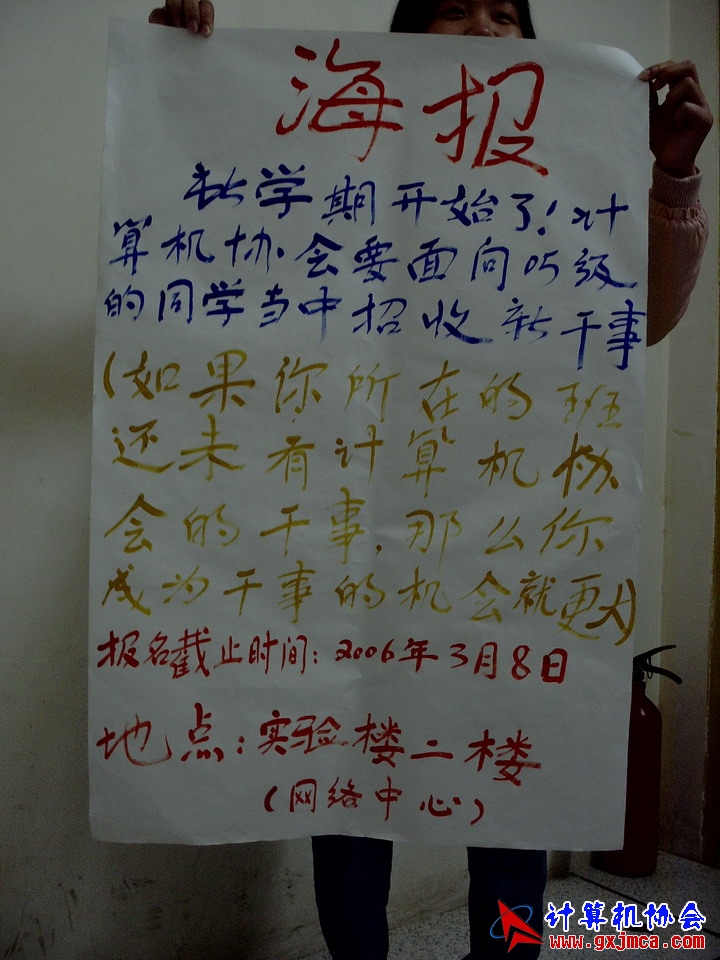 海报
新学期开始了!计
算机协会要面向05级
的同学当中招收新干事
(如果你所在的班
还未有计算机协
会的干事,那么你
成为干事的机会就更大)
报名截止时间:2006年3月8日
地点:实验楼二楼
(网络中心)
计算机协会
www.gxjmca.com